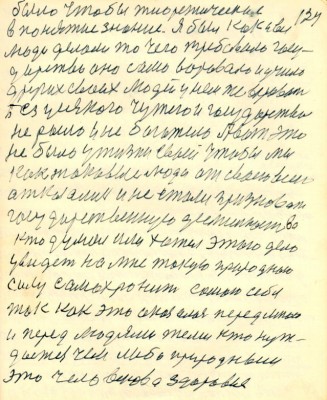 было чтобы теоретически 124
в понятие знание. Я был как все
люди делали то чего требовало госу-
дарство оно само воровало и учило
других своих людей у нем же воровать
Без всякого чужего и государства
не было и не богатело А вот это
не было у жизни своей чтобы мы
как таковые люди от своего
отказали и не стали признавать
государственную деятельность
кто думал или хотел этого дело
увидеть на мне такую природную
силу самохранить самого себя
так как это оказалося передо мною
и перед людями теми кто нуж-
дается чем либо природным
это человека здоровье